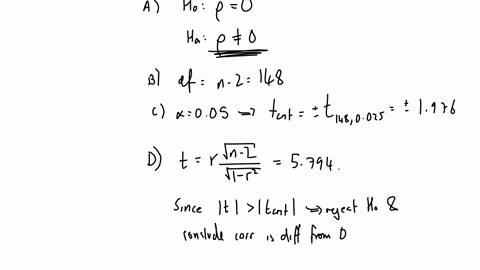 A) H₀: ρ = 0
Ha: ρ ≠ 0
B) df = n-2 = 148
C) α = 0.05 ⇒ tcrit = ± t148,0.025 = ± 1.976
D) t = r √n-2 / √1-r² = 5.794.
Since |t| > |tcrit| ⇒ reject H₀ &
conclude corr is diff from 0